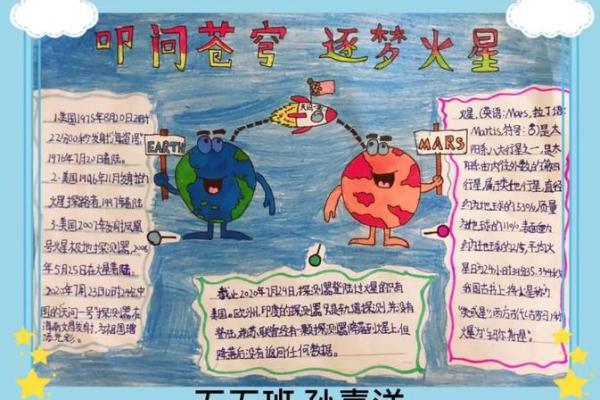 叩问苍穹 逐梦火星
1.美国1975年8月20日21时
22分00秒发射"海盗1号"
1976年7月20日着陆。
2.美国1996年11月发射的
火星探路者,1997年着陆
3.美国2007年发射凤凰
号火星极地探测器,2008年
5月25日在火星着陆。
2020年7月23日12时41分中
国的天问一号探测器在
海南文昌发射,
EARTH
天问一号
MARS
截止2020年7月29日,探测器登陆过火星的只有
美国。欧洲、印度的探测器只是轨道探测,并没有
登陆,苏联曾经有一颗探测器降落到火星上,但
降落后没有返回任何数据。
火星,(英语:Mars,拉丁语:
Martis.符号:♂)是太
阳系八大行星之一,是太
阳系由内往外数的第四
行星,属于类地行星,直径
约为地球的53%,质量
为地球的11%。表面重力
约为地球的2/5,平均火
星日为24小时39分35.244秒
我国古书上将火星称为
"荧或星",西方古代(古罗马)称
火星为"玛尔斯星"。
五五班 孙嘉洋